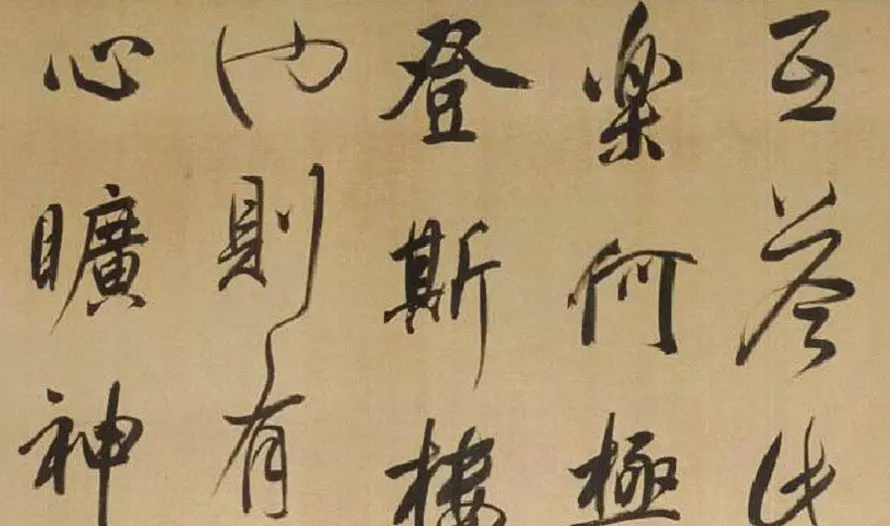 互荅此
樂何極
登斯樓
也則有
心曠神